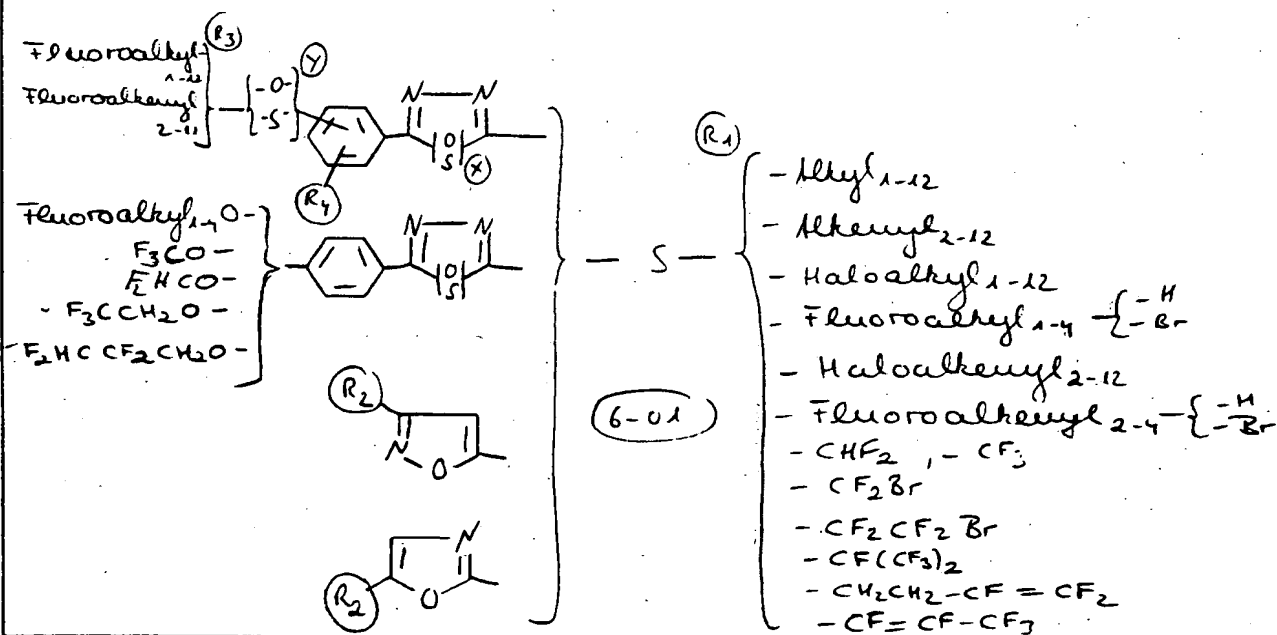 R3
Fluoroalkyl 1-12
Fluoroalkenyl 2-12
-O-
-S-
Y
N N
O
S
X
R4
Fluoroalkyl1-4 O-
F3CO-
F2HCO-
- F3CCH2O-
- F2HC CF2CH2O-
N N
O
S
R2
N O
N
R2 O
- S -
6-01
R1
- Alkyl 1-12
- Alkenyl 2-12
- Haloalkyl 1-12
- Fluoroalkyl 1-4 { -H
-Br
- Haloalkenyl 2-12
- Fluoroalkenyl 2-4 { -H
-Br
- CHF2 , - CF3
- CF2Br
- CF2CF2Br
- CF(CF3)2
- CH2CH2-CF=CF2
- CF=CF-CF3